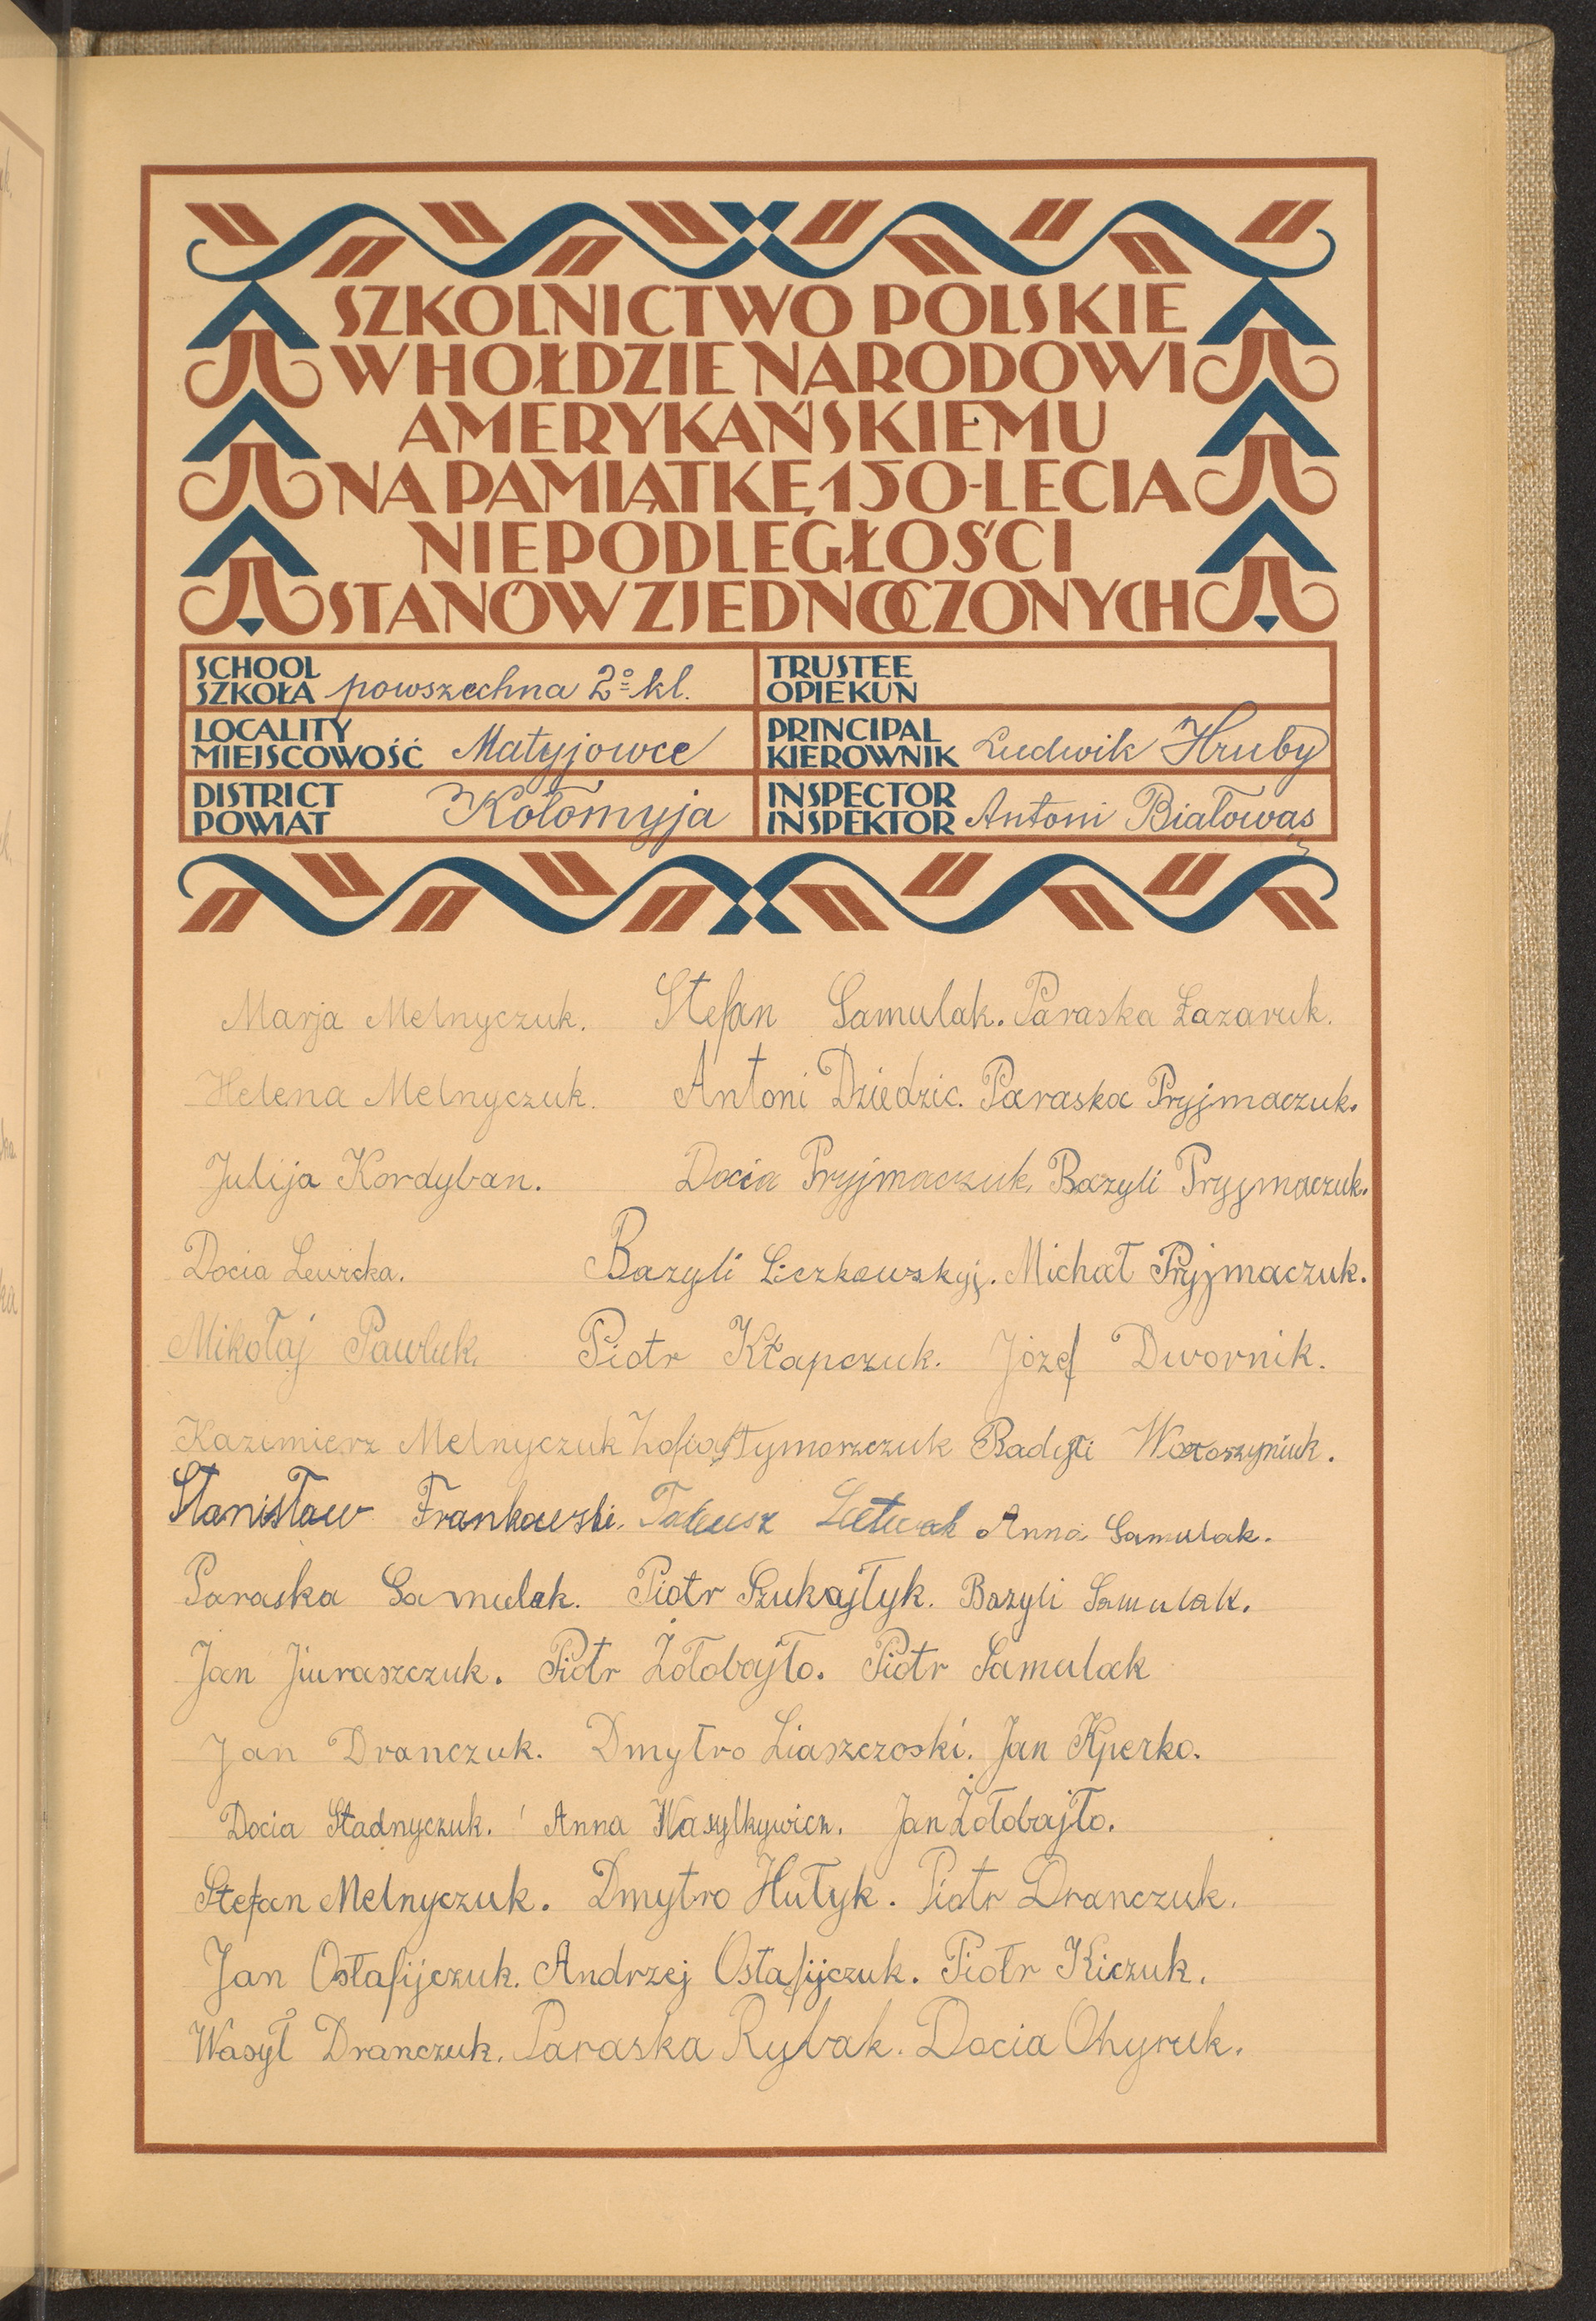 SZKOLNICTWO POLSKIE
W HOŁDZIE NARODOWI
AMERYKAŃSKIEMU
NA PAMIĄTKĘ 150-LECIA
NIEPODLEGŁOŚCI
STANÓW ZJEDNOCZONYCH
SCHOOL
SZKOŁA powszechna 2º kl.
TRUSTEE
OPIEKUN
LOCALITY
MIEJSCOWOŚĆ Matyjowce
PRINCIPAL
KIEROWNIK Ludwik Hruby
DISTRICT
POWIAT Kołomyja
INSPECTOR
INSPEKTOR Antoni Białowąs
Marja Melnyczuk. Stefan Samulak. Paraska Łazaruk.
Helena Melnyczuk. Antoni Dziedzic. Paraska Pryjmaczuk.
Julija Kordyban. Docia Pryjmaczuk. Bazyli Pryjmaczuk.
Docia Lewicka. Bazyli Liczkowskyj. Michał Pryjmaczuk.
Mikołaj Pawluk. Piotr Kłapczuk. Józef Dwornik.
Kazimierz Melnyczuk Zofia Tymoszczuk Wołoszyniuk.
Stanisław Frankowski. Anna Samulak.
Paraska Samulak. Piotr Szukajłyk. Bazyli Samulak.
Jan Juraszczuk. Piotr Żołobajło. Piotr Samulak
Jan Dranczuk. Dmytro Liaszczoski. Jan Kperko.
Docia Stadnyczuk. Anna Wasylkywicz. Jan Żołobajło.
Stefan Melnyczuk. Dmytro Hułyk. Piotr Dranczuk.
Jan Ostafijczuk. Andrzej Ostafijczuk. Piotr Kiczuk.
Wasył Dranczuk. Paraska Rybak. Docia Ohyruk.